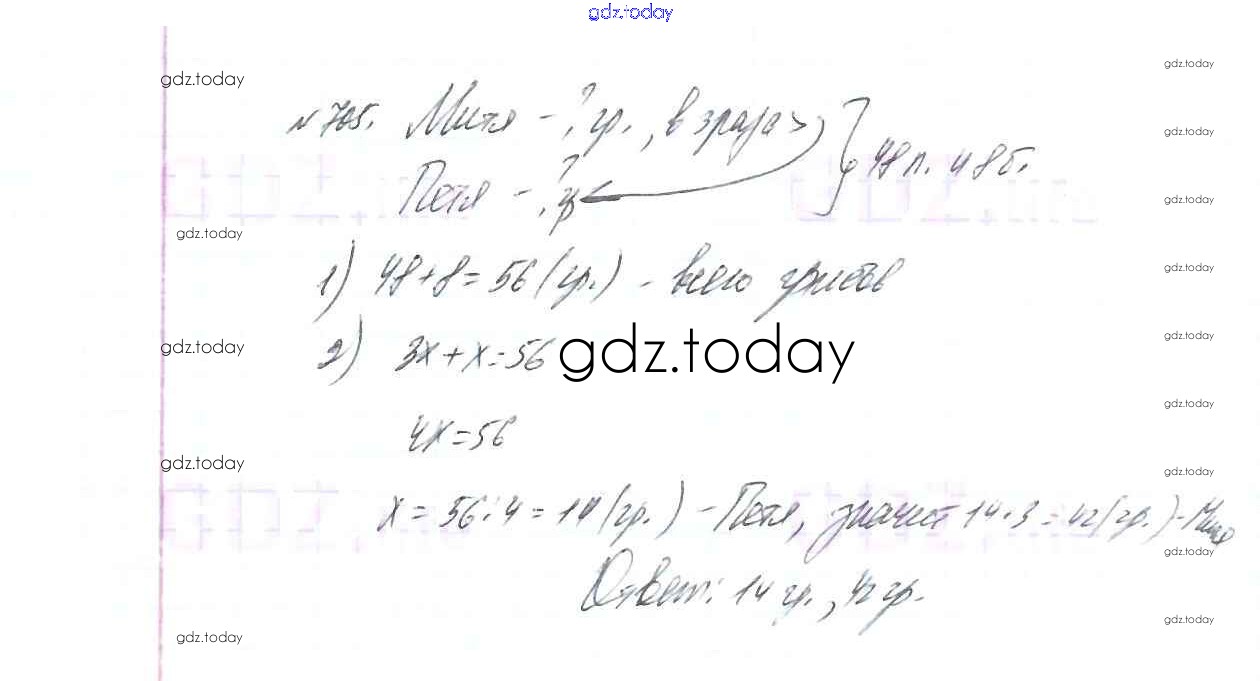 gdz.today
gdz.today
gdz.today
№705. Митя - ? гр., в 3 раза >
gdz.today
Петя - ? гр
48 п. и 8 б.
gdz.today
gdz.today
1) 48+8=56 (гр.) - всего грибов
gdz.today
2) 3x+x=56
gdz.today
gdz.today
gdz.today
gdz.today
4x=56
gdz.today
gdz.today
x=56:4=14 (гр.) - Петя, значит 14·3=42 (гр.) - Митя
gdz.today
Ответ: 14 гр., 42 гр.
gdz.today
gdz.today